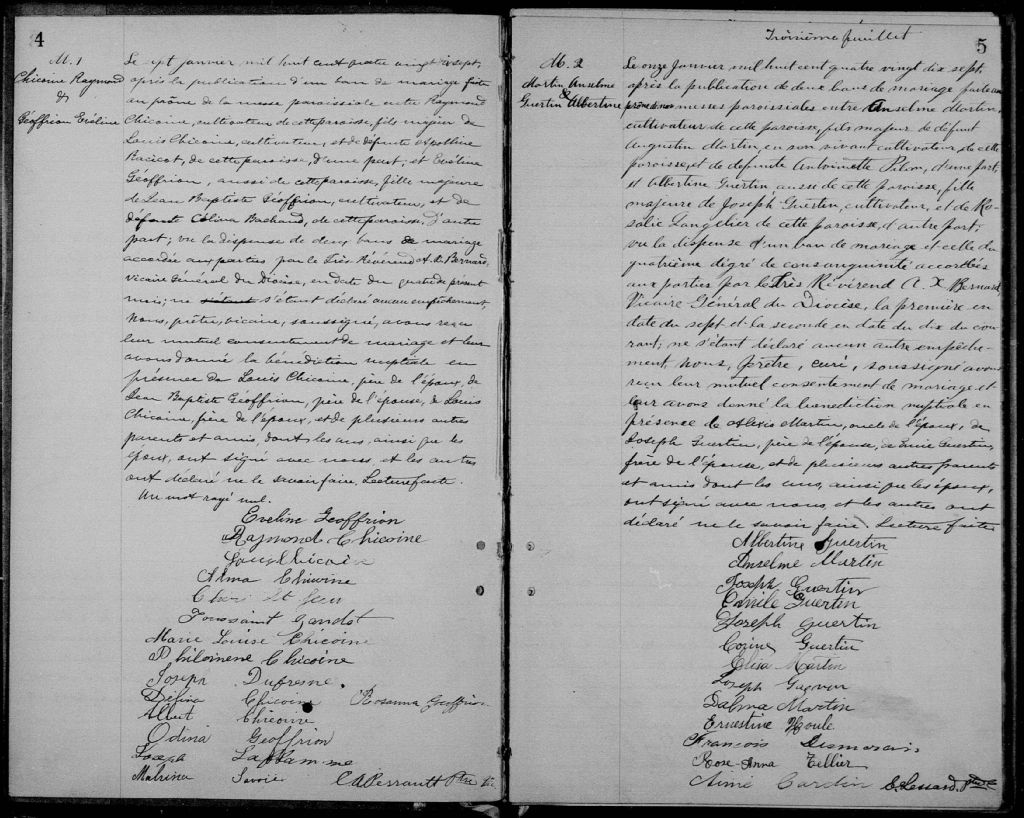 4
M. 1
Chicoine Raymond
&
Geoffrion Eveline
Le sept janvier mil huit cent quatre vingt dix sept,
après la publication d'un ban de mariage faite
au prône de la messe paroissiale entre Raymond
Chicoine, cultivateur de cette paroisse, fils majeur de
Louis Chicoine, cultivateur, et de défunte Apolline
Racicot, de cette paroisse, d'une part; et Eveline
Géoffrion, aussi de cette paroisse, fille majeure
de Jean Baptiste Géoffrion, cultivateur, et de
défunte Bachand, de cette paroisse, d'autre
part; vu la dispense de deux bans de mariage
accordée aux parties par le Très Révérend A. X. Bernard,
vicaire Général du Diocèse, en date du quatre du présent
mois; ne s'étant déclaré aucun empêchement,
Nous, prêtre, vicaire, soussigné, avons reçu
leur mutuel consentement de mariage et leur
avons donné la bénédiction nuptiale en
présence de Louis Chicoine, père de l'époux, de
Jean Baptiste Geoffrion, père de l'épouse, de Louis
Chicoine, frère de l'époux, et de plusieurs autres
parents et amis, dont les uns, ainsi que les
époux, ont signé avec nous, et les autres
ont déclaré ne le savoir faire. Lecture faite.
Un mot rayé nul.
Eveline Geoffrion
Raymond Chicoine
Louis Chicoine
Alma Chicoine
Toussaint
Marie Louise Chicoine
Philomene Chicoine
Joseph Dufresne.
Délina Chicoine Rosanna Geoffrion
Albert Chicoine
Odina Geoffrion
Joseph Laflamme
Malvina Savoie
C. A. Perrault Ptre Vic
Troisième feuillet
5
M. 2
Martin Anselme
&
Guertin Albertine
Le onze janvier mil huit cent quatre vingt dix sept,
après la publication de deux bans de mariage faite au
prône de nos messes paroissiales entre Anselme Martin,
cultivateur de cette paroisse, fils majeur de défunt
Augustin Martin, en son vivant cultivateur, de cette
paroisse, et de defunte Antoinette Pilon, d'une part,
et Albertine Guertin, aussi de cette paroisse, fille
majeure de Joseph Guertin, cultivateur, et de Ro-
salie Langelier de cette paroisse, d'autre part;
vu la dispense d'un ban de mariage et celle du
quatrième dégré de consanguinité accordées
aux parties par le Très Révérend A. X. Bernard
Vicaire Général du Diocèse, la première en
date du sept et la seconde en date du dix du cou-
rant; ne s'étant déclaré aucun autre empêche-
ment, Nous, prêtre, curé, soussigné avons
reçu leur mutuel consentement de mariage et
leur avons donné la bénédiction nuptiale en
présence de Alexis Martin, oncle de l'époux, de
Joseph Guertin, père de l'épouse, de Guertin,
frère de l'épouse, et de plusieurs autres parents
et amis dont les uns, ainsi que les époux,
ont signé avec nous, et les autres ont
déclaré ne le savoir faire. Lecture faite
Albertine Guertin
Anselme Martin
Joseph Guertin
Guertin
Joseph Guertin
Corine Guertin
Elisa Martin
Joseph Gagnon
Dalma Martin
Ernestine Houle
François Desmarais
Rose-Anna Tellier
Aimé Cardin
E. Lessard, Ptre